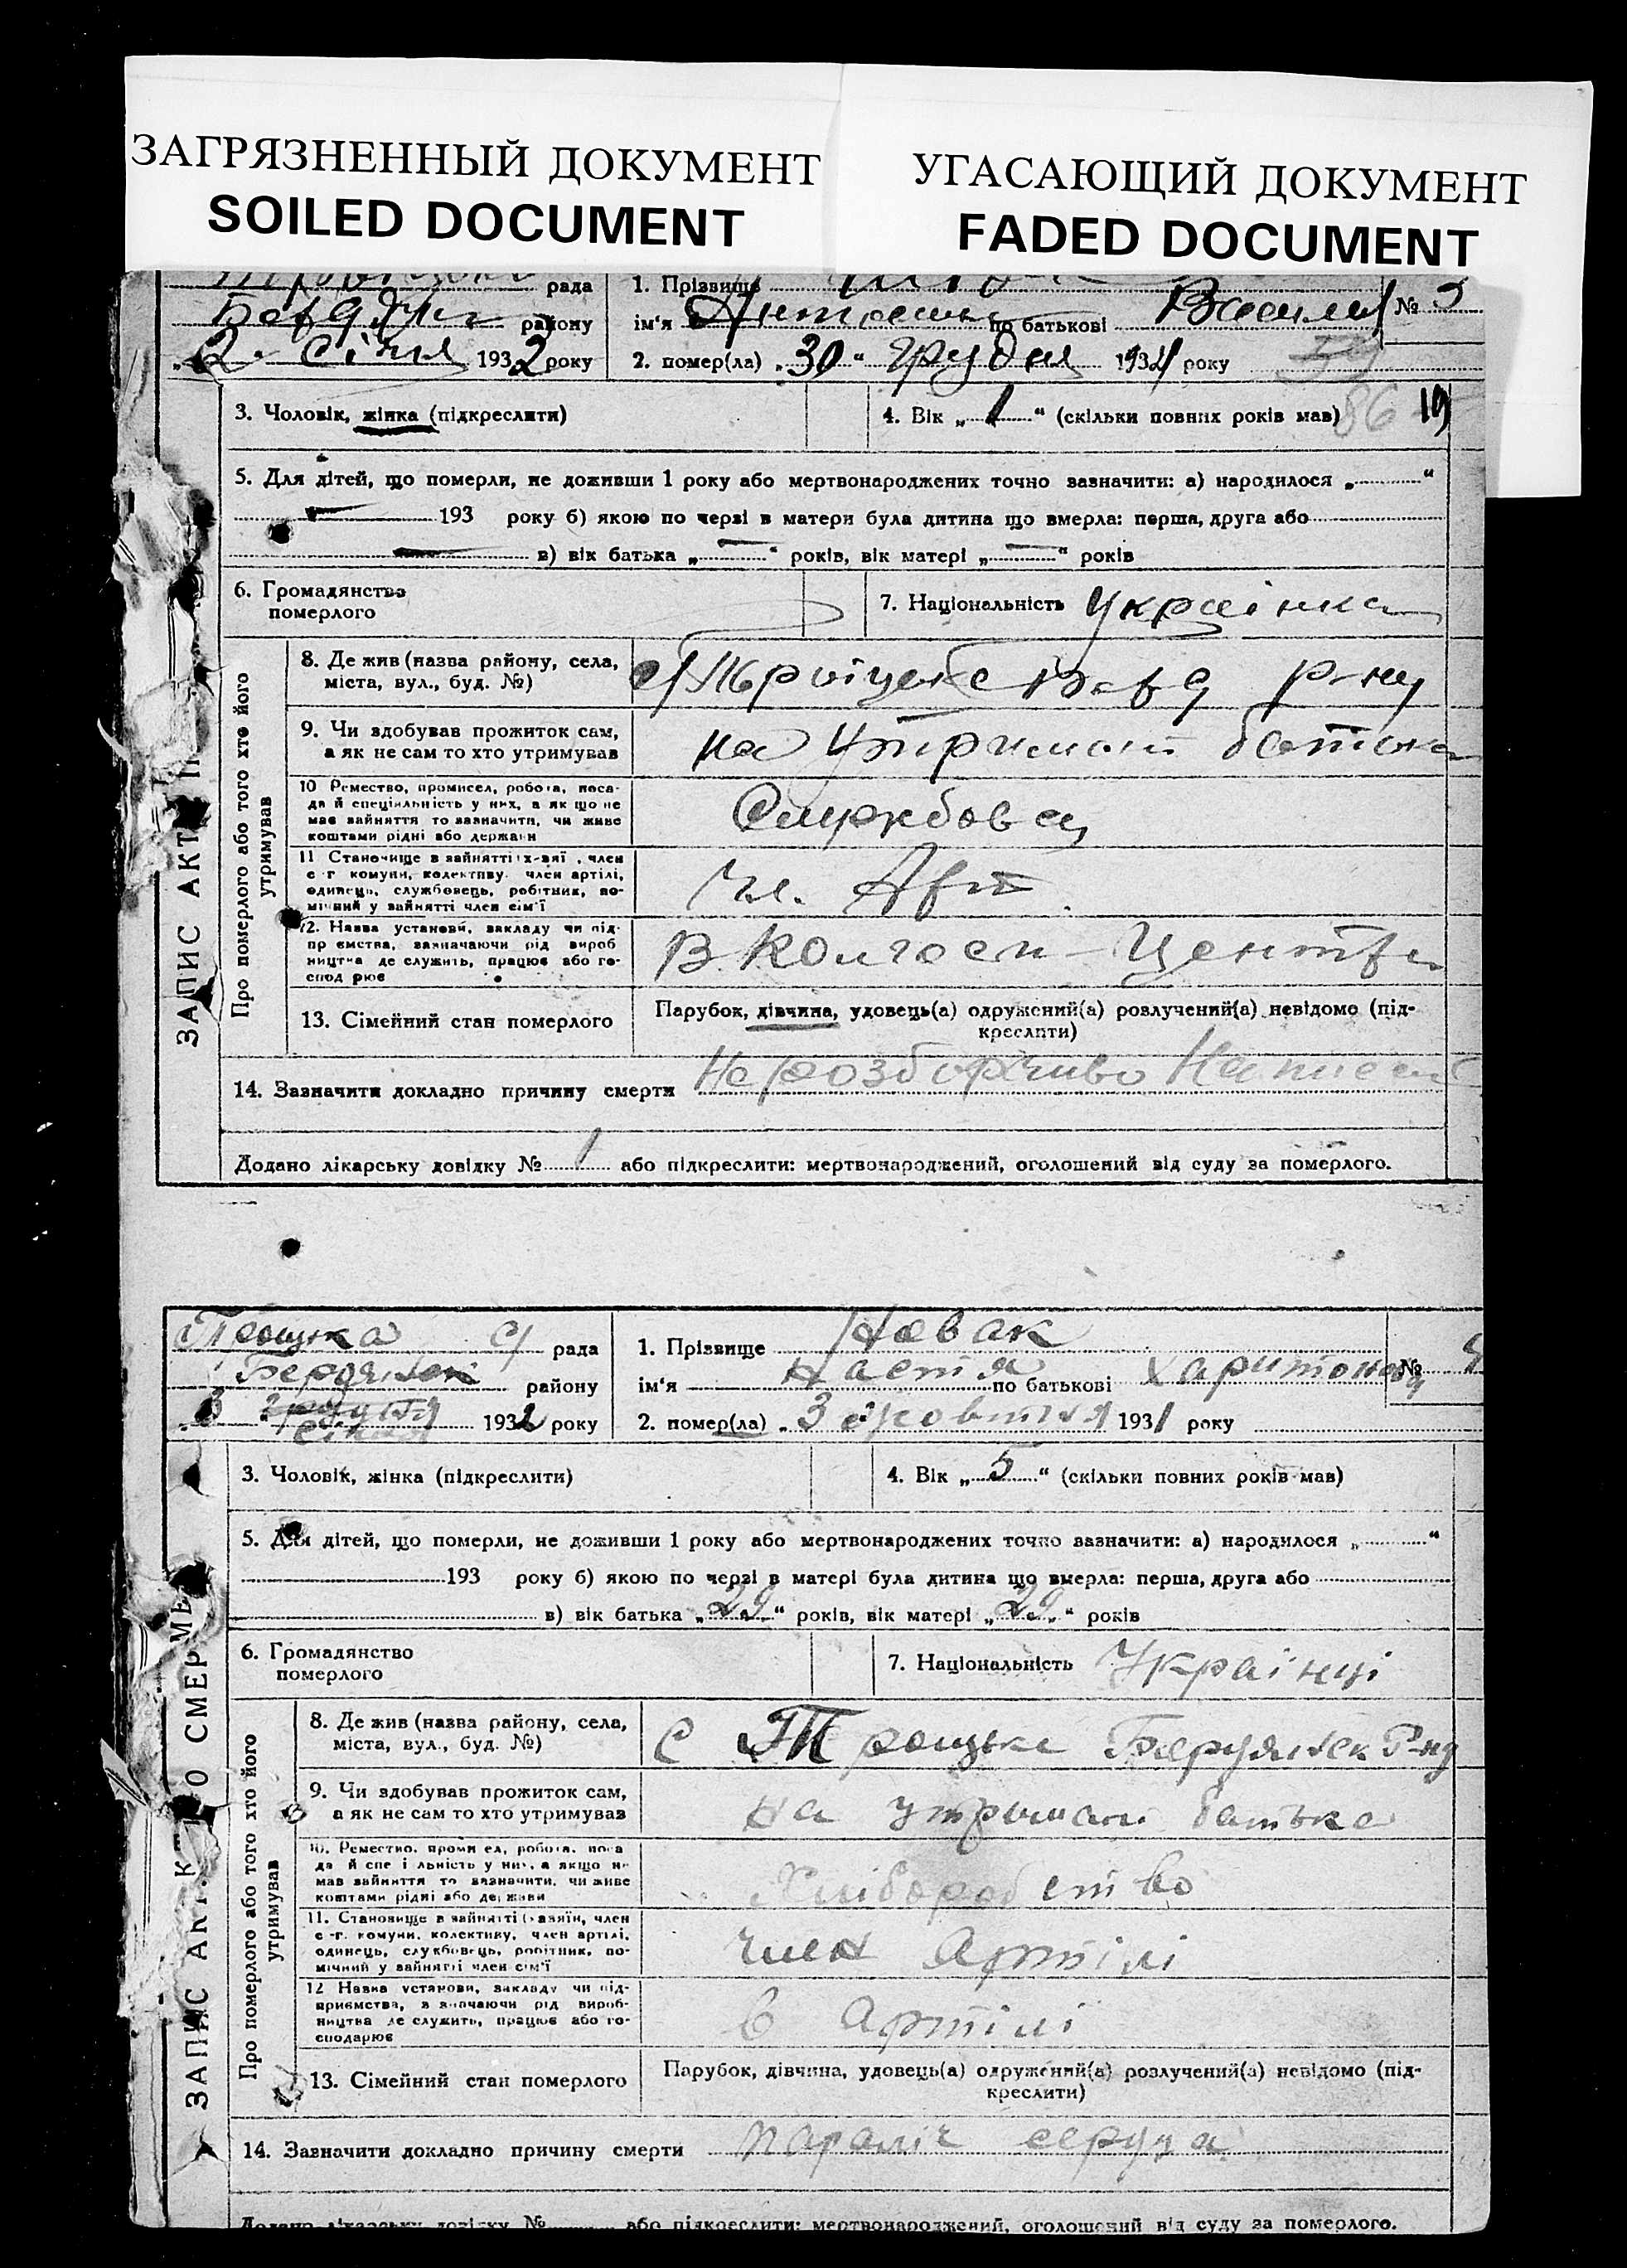 ЗАГРЯЗНЕННЫЙ ДОКУМЕНТ
SOILED DOCUMENT
УГАСАЮЩИЙ ДОКУМЕНТ
FADED DOCUMENT
рада
району
2 січня 1932 року
1. Прізвище
ім'я по батькові
2. помер(ла) „30“ грудня 1931 року
№ 3
3. Чоловік, жінка (підкреслити)
4. Вік „1“ (скільки повних років мав)
86 19
5. Для дітей, що померли, не доживши 1 року або мертвонароджених точно зазначити: а) народилося „ “
193 року б) якою по черзі в матери була дитина що вмерла: перша, друга або
в) вік батька „—“ років, вік матері „—“ років
6. Громадянство
померлого
7. Національність Українка
ЗАПИС АКТ
Про померлого або того хто його
утримував
8. Де жив (назва району, села,
міста, вул., буд. №)
р-ну
9. Чи здобував прожиток сам,
а як не сам то хто утримував
на утриман батька
10 Ремество, промисел, робота, поса-
да й спеціяльність у них, а як що не
мав зайняття то зазначити, чи живе
коштами рідні або держави
Службовец
11 Становище в зайнятті
с-г комуни, колективу член артілі,
одинець, службовець, робітник, по-
мічний у зайнятті член сім'ї
Чл. Арт.
12. Назва установи, закладу чи під-
приємства, зазначаючи рід вироб
ництва де служить, працює або го-
сподарює
В Колгосп-Центр
13. Сімейний стан померлого
Парубок, дівчина, удовець(а) одружений(а) розлучений(а) невідомо (під-
креслити)
14. Зазначити докладно причину смерти Нерозборчиво
Додано лікарську довідку № 1 або підкреслити: мертвонароджений, оголошений від суду за померлого.
рада
Бердянск району
3 грудня січня 1932 року
1. Прізвище Новак
ім'я Настя по батькові Харитонов
2. помер(ла) „3 жовтня 1931 року
№ 4
3. Чоловік, жінка (підкреслити)
4. Вік „5“ (скільки повних років мав)
5. Для дітей, що померли, не доживши 1 року або мертвонароджених точно зазначити: а) народилося „ “
193 року б) якою по черзі в матері була дитина що вмерла: перша, друга або
в) вік батька „29“ років, вік матері „29“ років
6. Громадянство
померлого
7. Національність Українці
ЗАПИС АКТ ПРО СМЕР
Про померлого або того хто його
утримував
8. Де жив (назва району, села,
міста, вул., буд. №)
С Троцьке Бердянск Р-ну
9. Чи здобував прожиток сам,
а як не сам то хто утримував
на утриман батька
10. Ремество, промисел, робота, поса
да й спеціяльність у них, а якщо не
мав зайняття то зазначити, чи живе
коштами рідні або держави
Хліборобство
11. Становище в зайнятті (хазяїн, член
с-г. комуни, колективу, член артілі,
одинець, службовець, робітник, по-
мічний у зайнятті член сім'ї
член Артілі
12 Назва установи, закладу чи під-
приємства, зазначаючи рід вироб-
ництва де служить, працює або го-
сподарює
в Артілі
13. Сімейний стан померлого
Парубок, дівчина, удовець(а) одружений(а) розлучений(а) невідомо (під-
креслити)
14. Зазначити докладно причину смерти параліч серця
Додано лікарську довідку № або підкреслити: мертвонароджений, оголошений від суду за померлого.